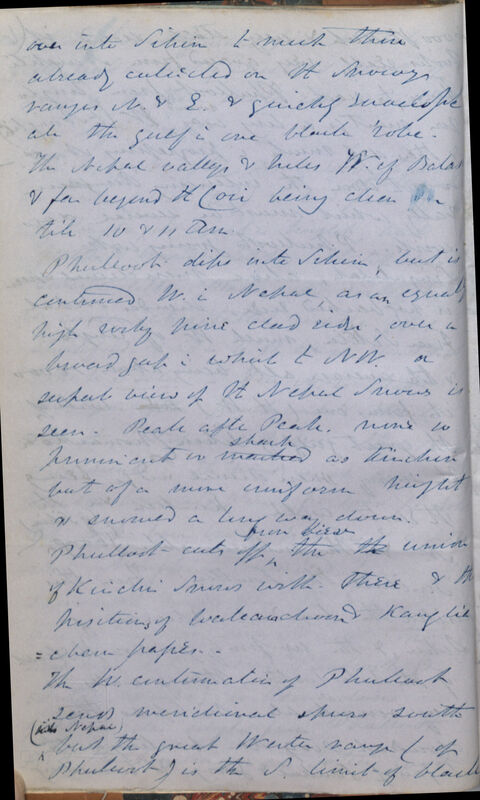 over into Sikim to meet those
already collected on the Snowy
ranges N. & E. & quickly envelope
all the gulf i one black robe.
The Nepal valleys & hills W. of
& far beyond the Cosi being clear
till 10 & 11 Am.
Phulloot dips into Sikim, but is
continued W. i Nepal, as an equally
high rocky pine clad ridge, over a
broad gap i which to NW. a
superb view of the Nepal Snows is
seen. Peak after Peak, none so
prominent or shark as Kinchin
but of a more uniform height
& snowed a long way down.
Phulloot cuts off from view the union
of Kinchin Snows with these & the
position of & Kanglia
=chem passes.
The W. continuation of Phulloot
sends meridional spurs south
(into Nepal)
but the great Western range (of
Phulloot) is the S. limit of black